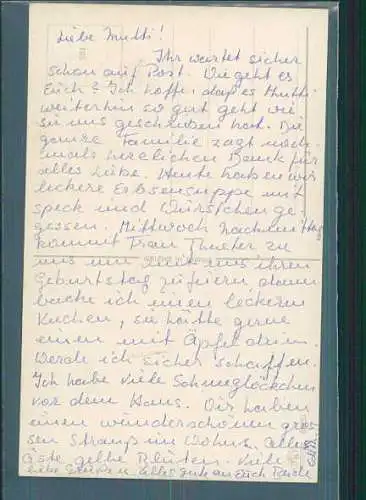 Liebe Mutti!
Ihr wartet sicher
schon auf Post. Wie geht es
Euch? Ich hoffe, das es Mutti
weiterhin so gut geht wie
sie uns geschrieben hat. Die
ganze Familie sagt noch-
mals herzlichen Dank für
alles Liebe. Heute haben wir
leckere Erbsensuppe mit
Speck und Würstchen ge-
gessen. Mittwoch Nachmittag
kommt Frau Theuter zu
uns um mit uns ihren
Geburtstag zu feiern, dann
backe ich einen leckeren
Kuchen, sie hätte gerne
einen mit Äpfel drin.
Werde ich sicher schaffen.
Ich habe viele Schneeglöckchen
vor dem Haus. Wir haben
einen wunderschönen gros-
sen Strauss im Wohnz. alle
Äste gelbe Blüten. Viele
liebe Grüsse u. alles gute an Euch